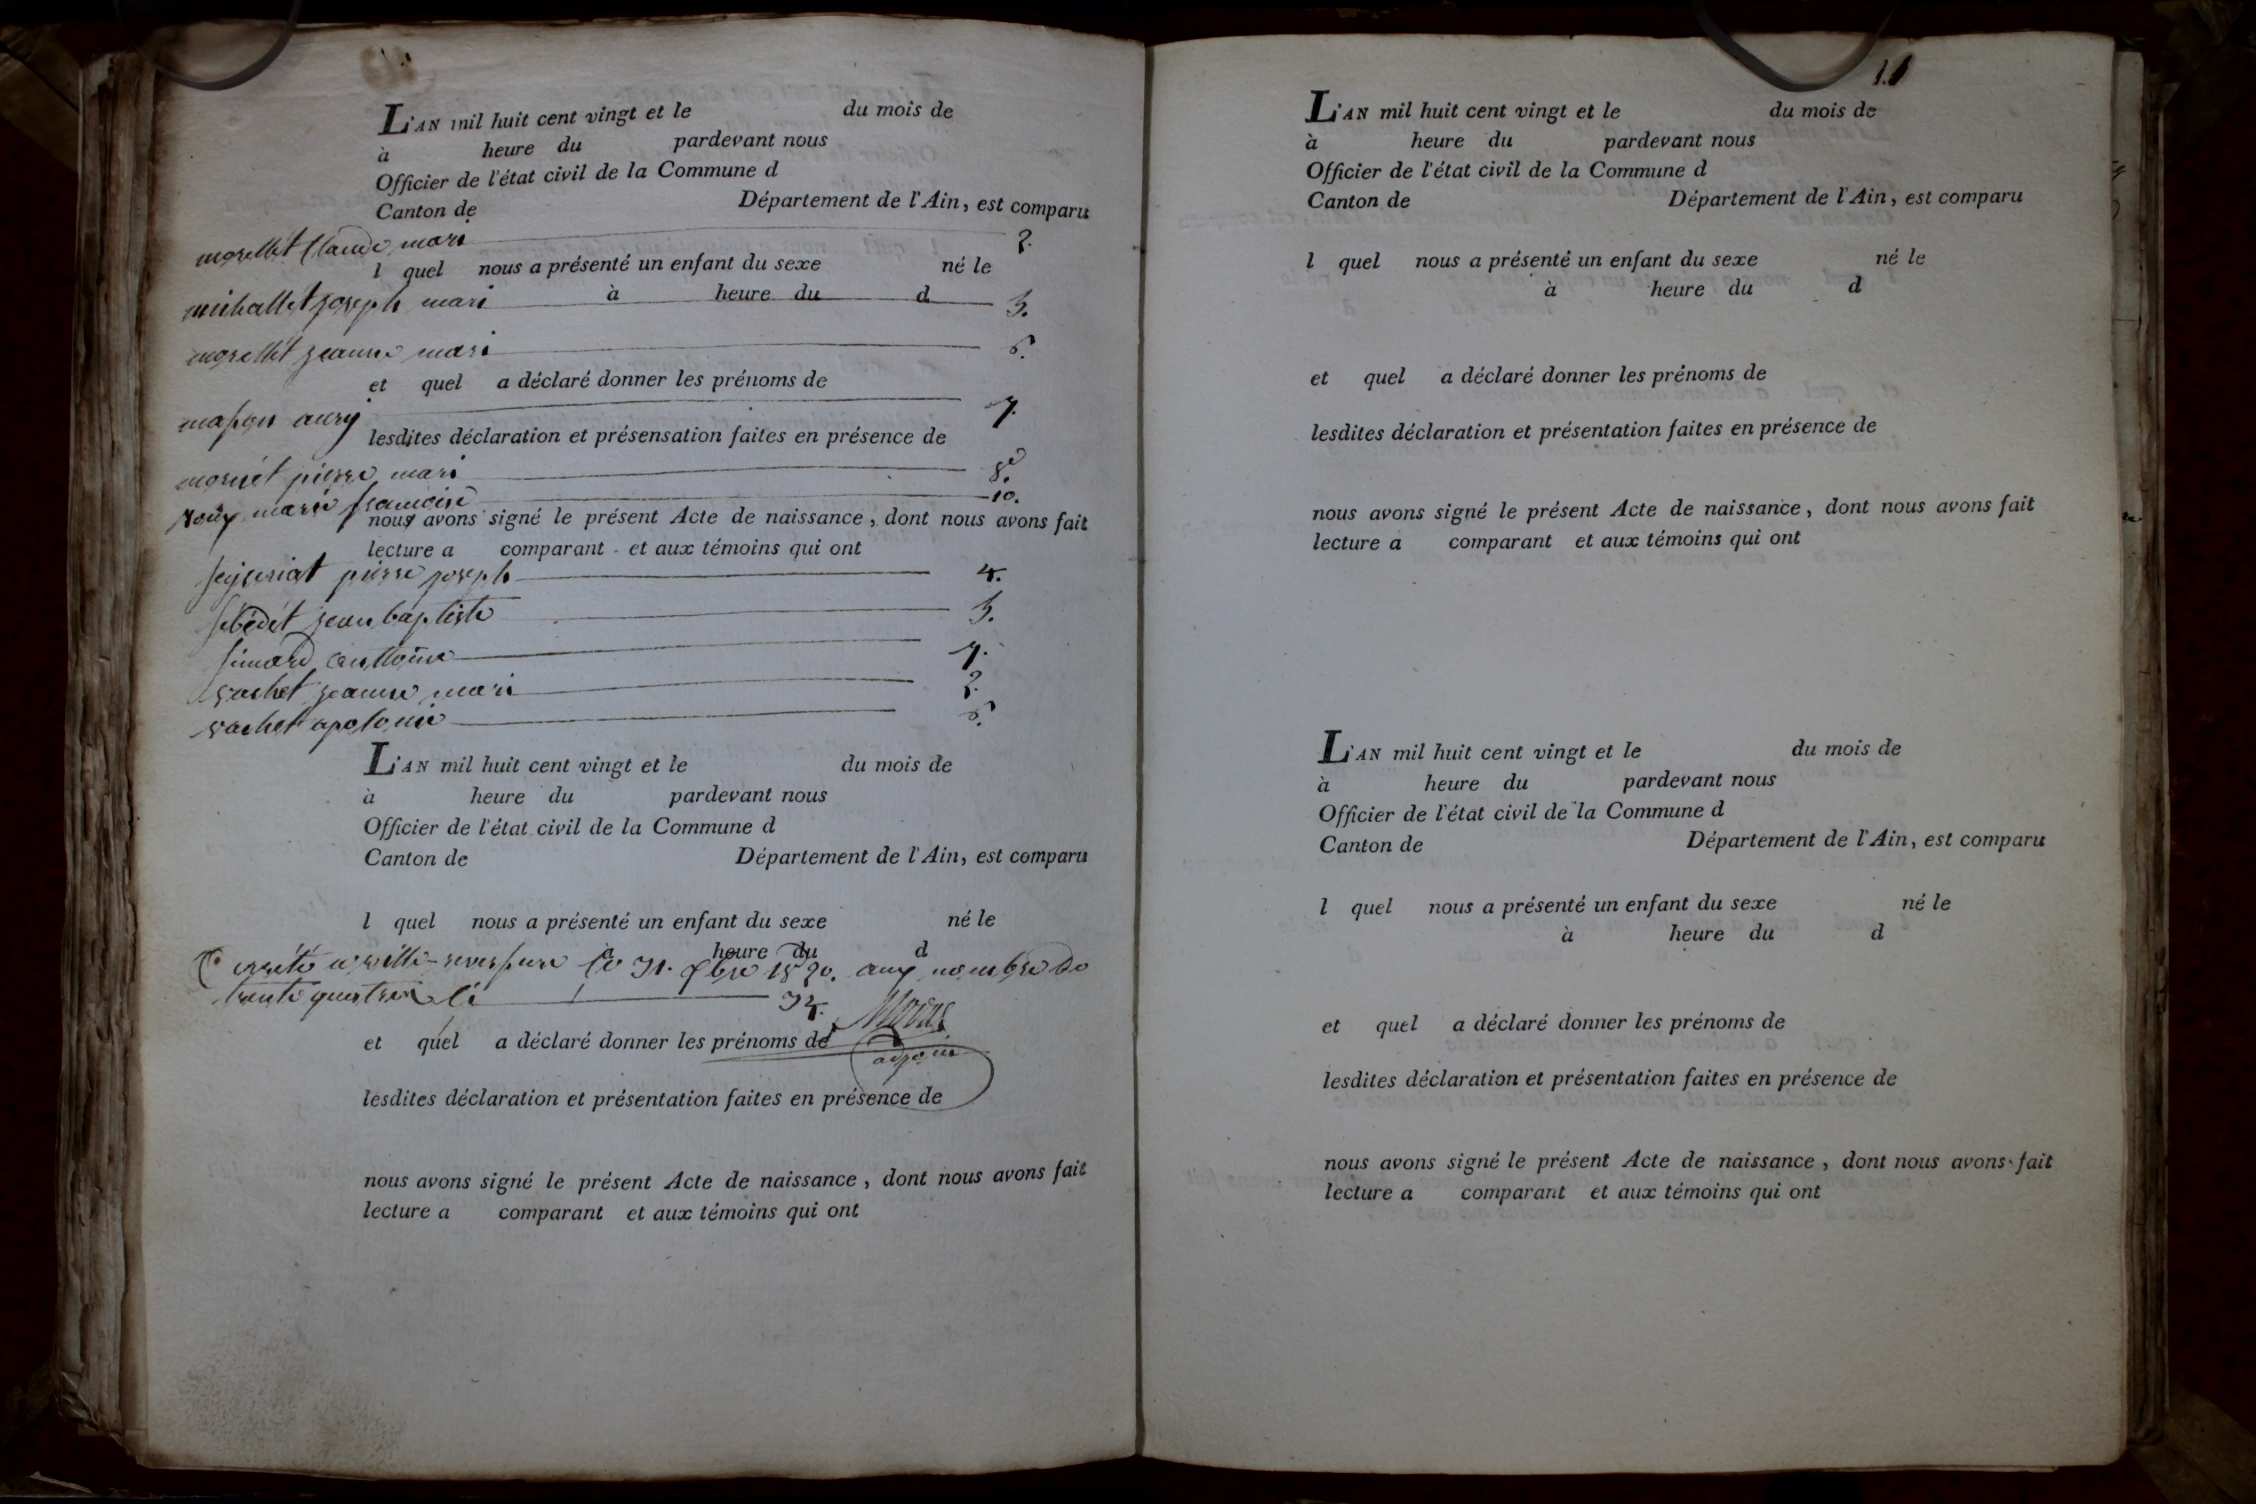 L'AN mil huit cent vingt et le du mois de
à heure du pardevant nous
Officier de l'état civil de la Commune d
Canton de Département de l'Ain, est comparu
morellet Claude mari 2.
l quel nous a présenté un enfant du sexe né le
michallet joseph mari 3.
à heure du d
morellet jeanne mari 6.
et quel a déclaré donner les prénoms de
7.
lesdites déclaration et présensation faites en présence de
pierre mari 8.
roux marie francoise 10.
nous avons signé le présent Acte de naissance, dont nous avons fait
lecture a comparant et aux témoins qui ont
pierre joseph 4.
jean baptiste 3.
simard antoine 7.
vachet jeanne mari 2.
vachet apolonie 6.
L'AN mil huit cent vingt et le du mois de
à heure du pardevant nous
Officier de l'état civil de la Commune d
Canton de Département de l'Ain, est comparu
l quel nous a présenté un enfant du sexe né le
à heure du d
arrêté a ville-reversure le 31. 1820. aux nombre de
trente quatre 34.
adjoin
et quel a déclaré donner les prénoms de
lesdites déclaration et présentation faites en présence de
nous avons signé le présent Acte de naissance, dont nous avons fait
lecture a comparant et aux témoins qui ont
11
L'AN mil huit cent vingt et le du mois de
à heure du pardevant nous
Officier de l'état civil de la Commune d
Canton de Département de l'Ain, est comparu
l quel nous a présenté un enfant du sexe né le
à heure du d
et quel a déclaré donner les prénoms de
lesdites déclaration et présentation faites en présence de
nous avons signé le présent Acte de naissance, dont nous avons fait
lecture a comparant et aux témoins qui ont
L'AN mil huit cent vingt et le du mois de
à heure du pardevant nous
Officier de l'état civil de la Commune d
Canton de Département de l'Ain, est comparu
l quel nous a présenté un enfant du sexe né le
à heure du d
et quel a déclaré donner les prénoms de
lesdites déclaration et présentation faites en présence de
nous avons signé le présent Acte de naissance, dont nous avons fait
lecture a comparant et aux témoins qui ont